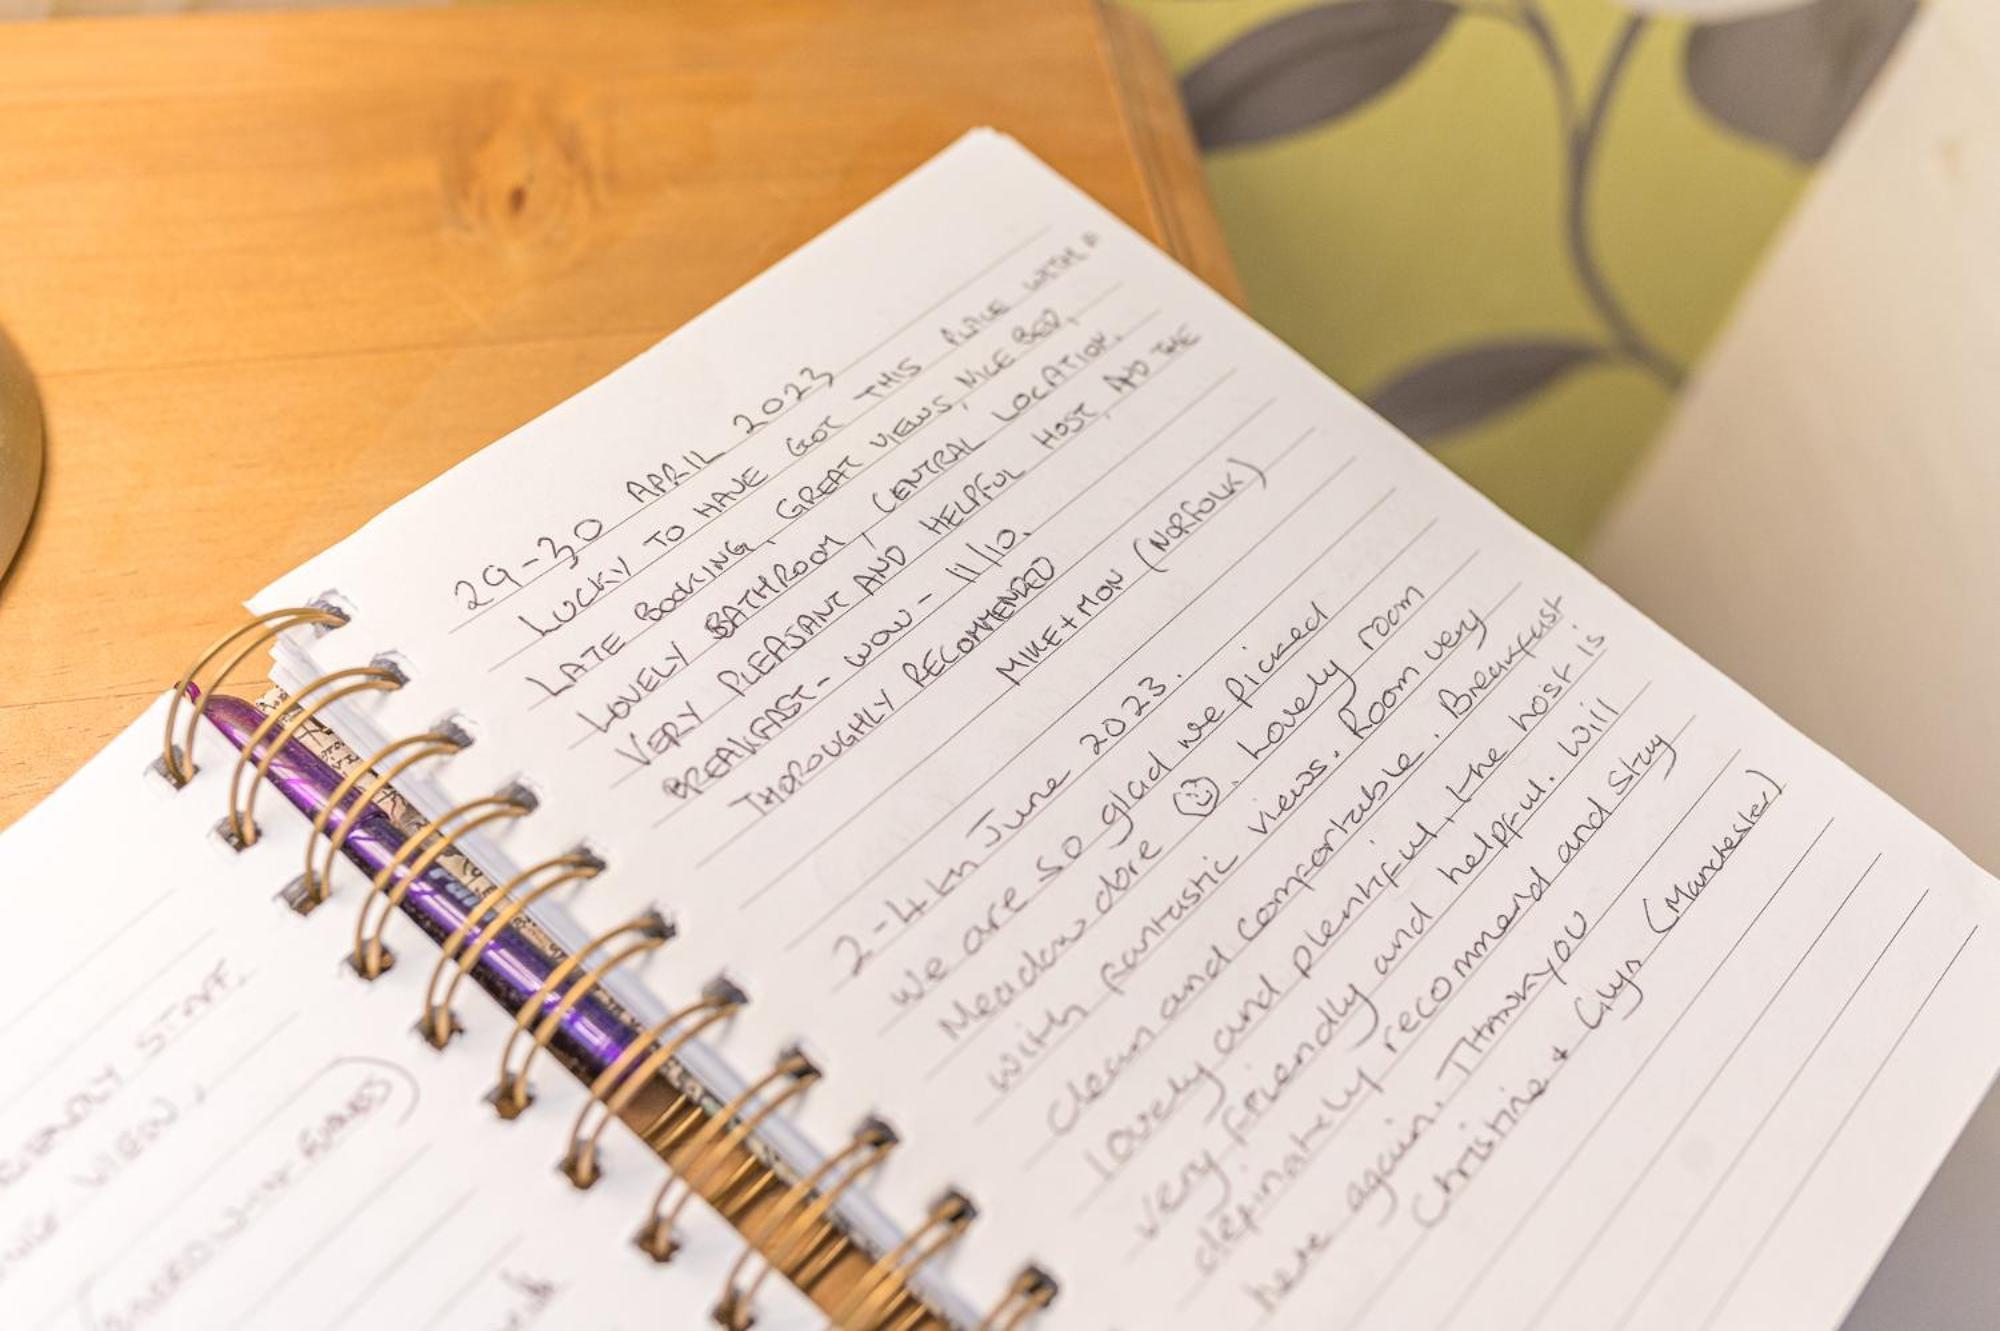 FRIENDLY STAFF.
VIEW,
29-30 APRIL 2023
LUCKY TO HAVE GOT THIS PLACE WITH A
LATE BOOKING, GREAT VIEWS, NICE BED,
LOVELY BATHROOM, CENTRAL LOCATION.
VERY PLEASANT AND HELPFUL HOST, AND THE
BREAKFAST - WOW - 11/10.
THOROUGHLY RECOMMENDED
MIKE + MON (NORFOLK)
2-4th June 2023.
We are so glad we picked
Meadowdore ☺. Lovely room
with fantastic views. Room very
clean and comfortable. Breakfast
lovely and plentiful, the host is
very friendly and helpful. Will
definately recommend and stay
here again. THANKYOU
Christine + Glyn (Manchester)